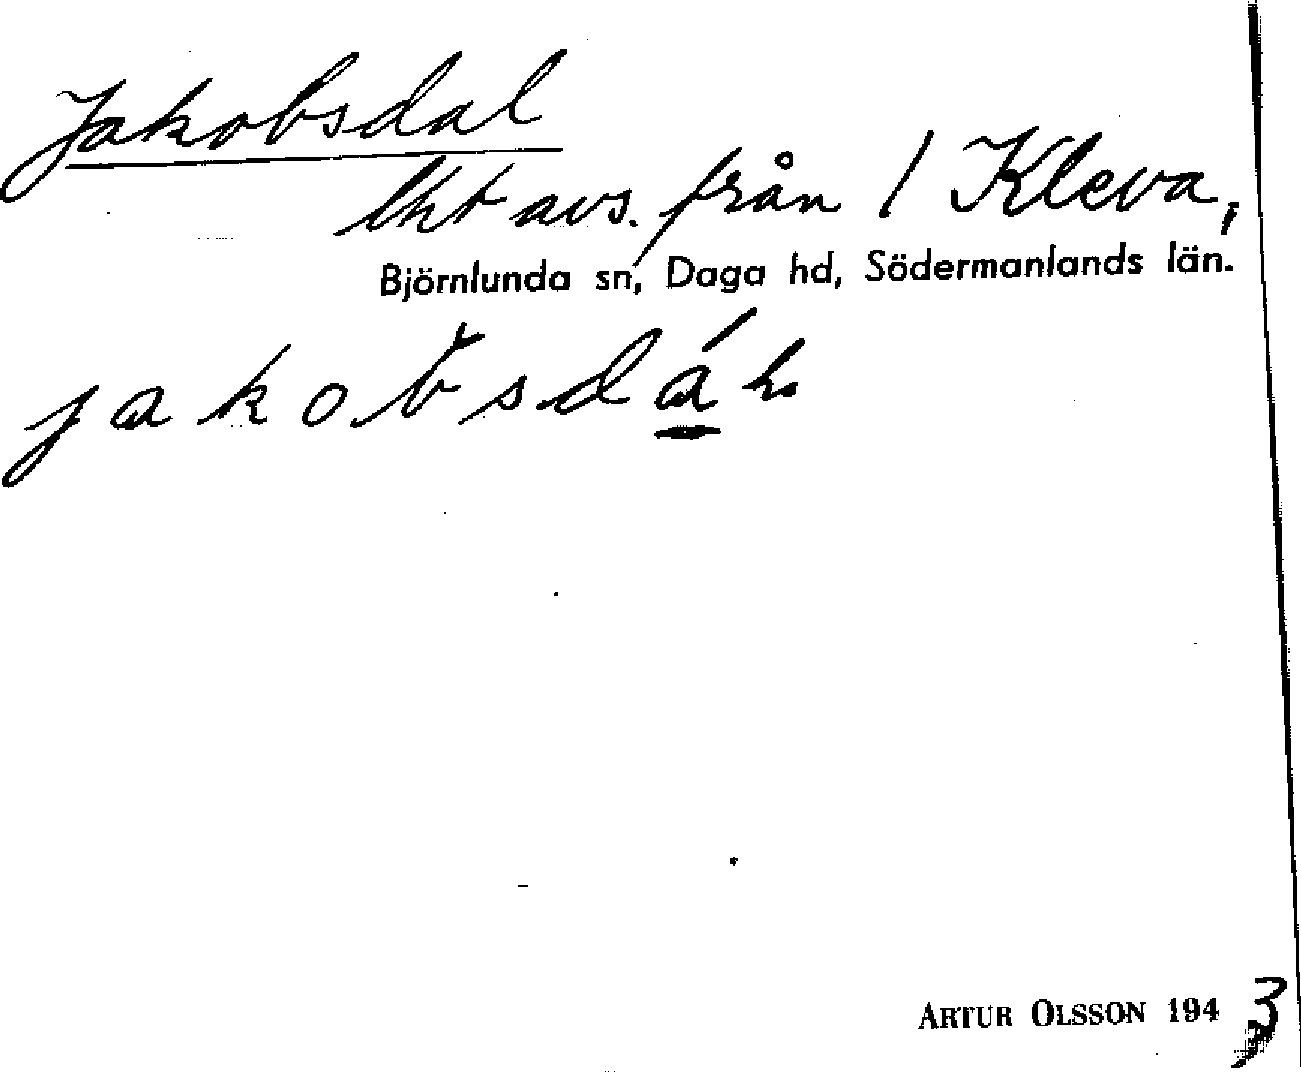 Jakobsdal
lht avs. från 1 Kleva,
Björnlunda sn, Daga hd, Södermanlands län.
jakobsdá
ARTUR OLSSON 1943